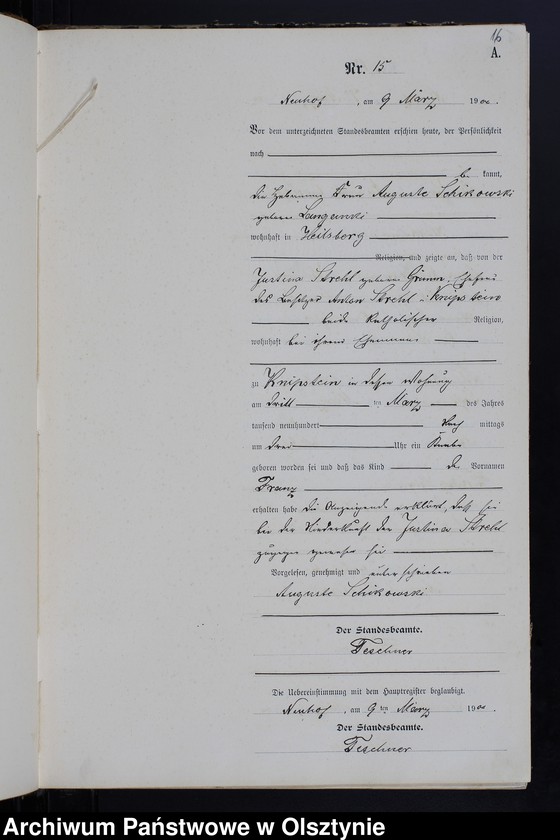 16
A.
Nr. 15
Neuhof, am 9 März 1900.
Vor dem unterzeichneten Standesbeamten erschien heute, der Persönlichkeit
nach
be kannt,
die Hebamme Frau Auguste Schikowski
geboren
wohnhaft in Heilsberg
Religion, und zeigte an, daß von der
Justina Strehl geborene Grimm, Ehefrau
des Besitzer Anton Strehl in Knipstein
beide katholischer Religion,
wohnhaft bei ihrem Ehemanne
zu Knipstein in dessen Wohnung
am dritten März des Jahres
tausend neunhundert Nach mittags
um drei Uhr ein Knabe
geboren worden sei und daß das Kind den Vornamen
Franz
erhalten habe die Anzeigende erklärt, daß sie
bei der Niederkunft der Justina Strehl
zugegen gewesen sei
Vorgelesen, genehmigt und unterschrieben
Auguste Schikowski
Der Standesbeamte.
Teschner
Die Uebereinstimmung mit dem Hauptregister beglaubigt.
Neuhof, am 9ten März 1900.
Der Standesbeamte.
Teschner
Archiwum Państwowe w Olsztynie